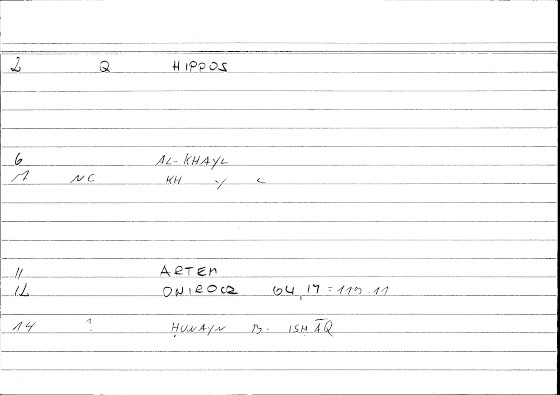 2 Q HIPPOS
6 AL-KHAYL
7 NC KH Y L
11 ARTEM
12 ONIROCR 64,17=119.11
14 ? ḤUNAYN B. ISḤĀQ